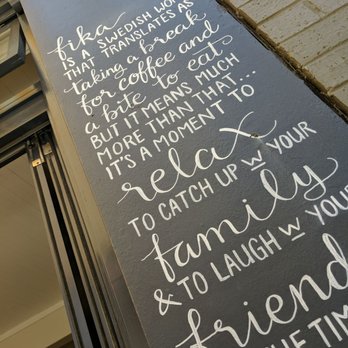 fika
IS A SWEDISH WO
THAT TRANSLATES AS
taking a break
for coffee and
a bite to eat
BUT IT MEANS MUCH
MORE THAN THAT...
IT'S A MOMENT TO
relax
TO CATCH UP W YOUR
family
& TO LAUGH W YOUR
friend
THE TIM